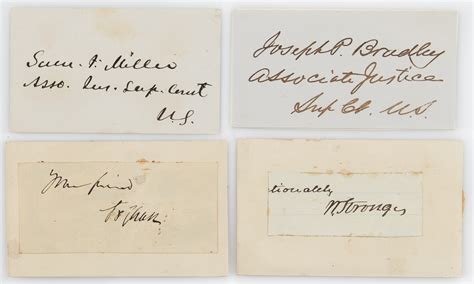 Sam. F. Miller
Asso. Jus. Sup. Court
U.S.
Joseph P. Bradley
Associate Justice
Sup Ct. U.S.
Your friend
tionately
W. Strong